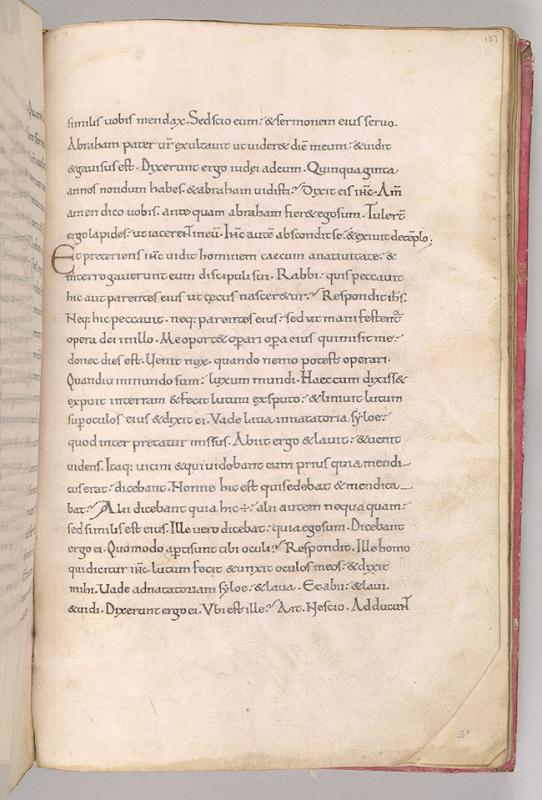 137
similis uobis mendax. Sed scio eum: & sermonem eius seruo.
Abraham pater ur̄ exultauit ut uider& diē meum: & uidit
& gauisus est. Dixerunt ergo iudei ad eum. Quinquaginta
annos nondum habes. & abraham uidisti? Dixit eis ih̄c. Am̄
amen dico uobis. ante quam abraham fier& ego sum. Tulerē
ergo lapides: ut iacerent in eū. Ih̄c autē abscondit se: & exiuit de tēplo;
Et preteriens ih̄c uidit hominem caecum a natiuitate: &
interrogauerunt eum discipuli sui. Rabbi: quis peccauit
hic aut parentes eius ut cęcus nascer&ur? Respondit ih̄s.
Neq: hic peccauit. neq: parentes eius: sed ut manifestent̄
opera dei in illo. Me oport& opari opa eius qui misit me:
donec dies est. Uenit nox. quando nemo potest operari.
Quandiu in mundo sum: lux sum mundi. Haec cum dixiss&
expuit in terram & fecit lutum ex sputo: & liniuit lutum
sup oculos eius & dixit ei. Vade laua in natatoria syloe:
quod inter pretatur missus. Abiit ergo & lauit: & uenit
uidens. Itaq: uicini & qui uidebant eum prius quia mendi-
cus erat: dicebant. Nonne hic est qui sedebat & mendica-
bat? Alii dicebant quia hic ÷: alii autem nequaquam:
sed similis est eius. Ille uero dicebat: quia ego sum. Dicebant
ergo ei. Quomodo apti sunt tibi oculi? Respondit. Ille homo
qui dicitur ih̄c. lutum fecit & unxit oculos meos: & dixit
mihi. Uade ad natatoriam syloe: & laua. Et abii: & laui.
& uidi. Dixerunt ergo ei. Vbi est ille? Ait. Nescio. Adducunt